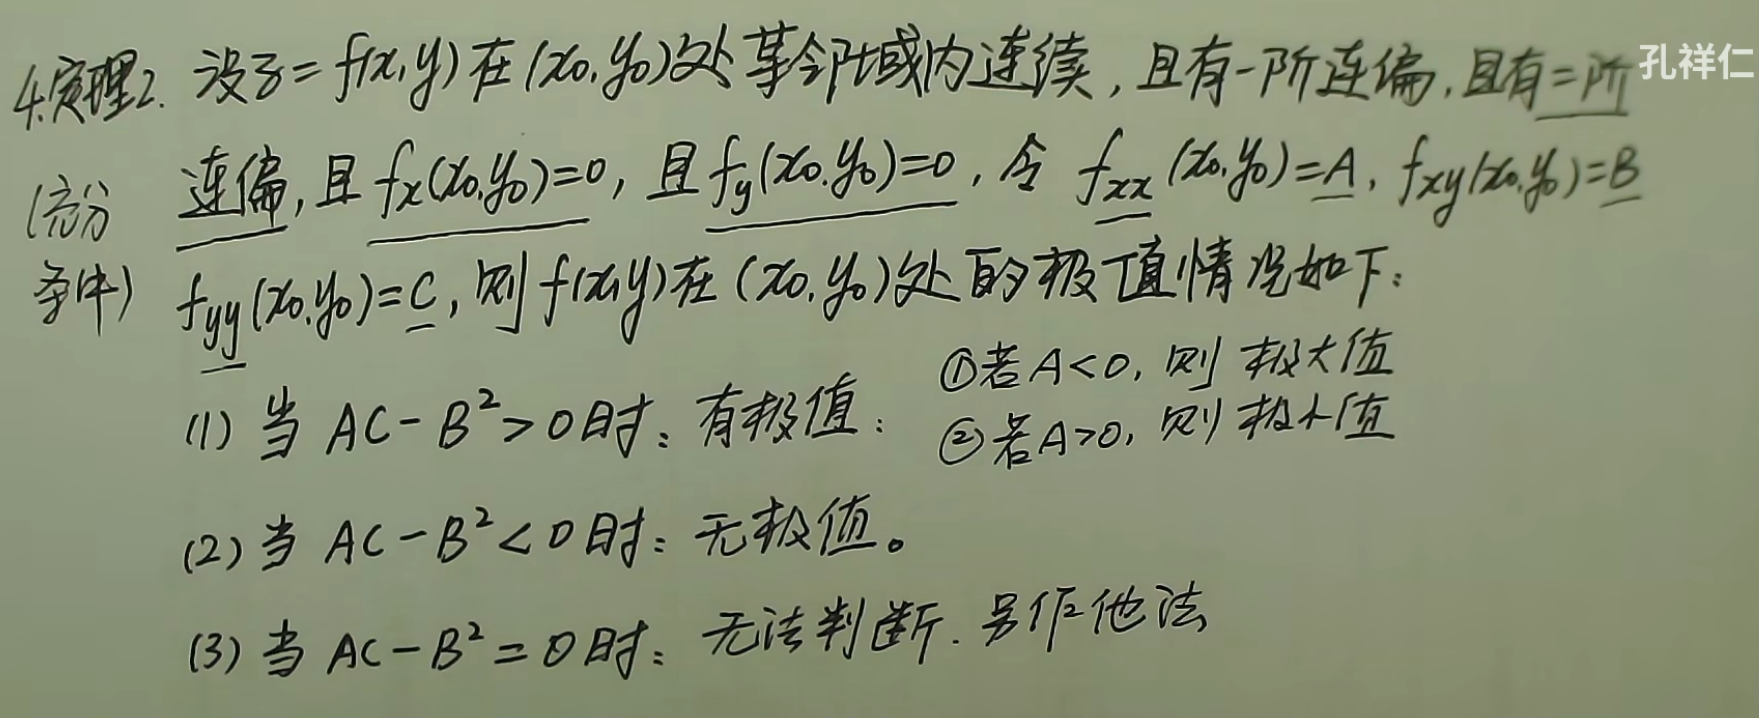 4.定理2. 设z=f(x,y)在(x0,y0)处某个邻域内连续,且有一阶连偏,且有二阶
孔祥仁
(充分 连偏,且fx(x0,y0)=0,且fy(x0,y0)=0,令 fxx(x0,y0)=A,fxy(x0,y0)=B
条件) fyy(x0,y0)=C,则f(x,y)在(x0,y0)处的极值情况如下:
(1) 当 AC-B²>0时:有极值: ①若A<0,则 极大值
②若A>0,则 极小值
(2) 当 AC-B²<0时:无极值。
(3) 当 AC-B²=0时:无法判断.另作他法